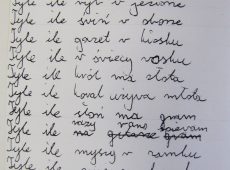 Tyle ile ryb w jeziorze
Tyle ile świń w oborze
Tyle ile gazet w kiosku
Tyle ile w świecy wosku
Tyle ile król ma złota
Tyle ile kowal używa młota
Tyle ile słoń ma gram
Tyle ile razy rano śpiewam
na gitarze gram
Tyle ile myszy w zamku
Tyle ile